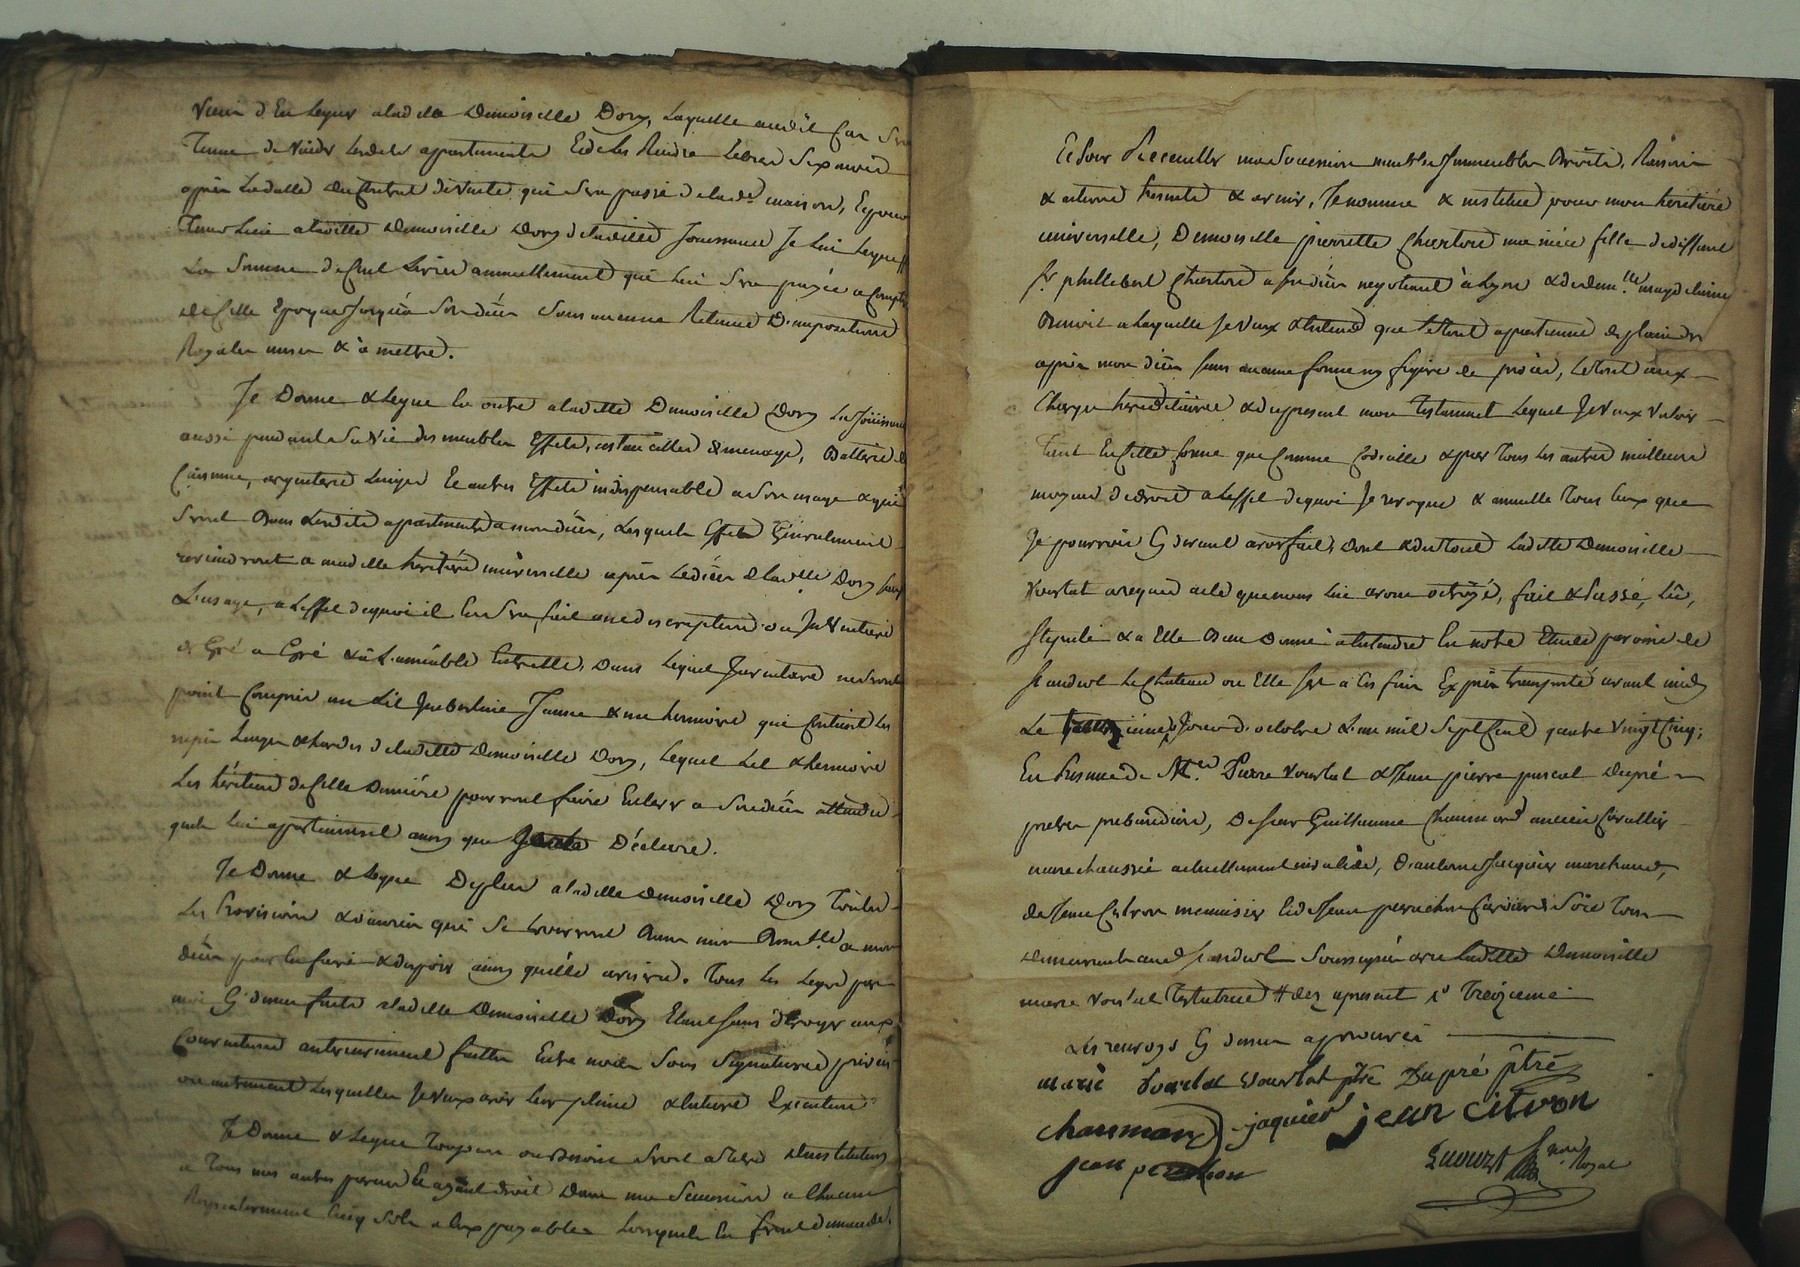 venir d'En leguer a ladite Demoiselle Dory, Laquelle audit Cas Sera
Tenue de vuider lesdits appartements Et de les Rendre libres Six mois
après la datte du Contrat de vente qui sera passé de lade maison, Et pour
Tenir lieu a laditte Demoiselle Dory de laditte Jouissance Je lui legue
La Somme de Cent Livres annuellement qui lui sera payée a Compter
de Cette Epoque Jusqu'à Son décès Sans aucune Retenue D'impositions
Royales mises & à mettre.
Je Donne & legue En outre a laditte Demoiselle Dory La Jouissance
aussi pendant Sa vie des meubles Effets, ustancilles de menage, Batterie de
Cuisinne, argenterie Linges Et autres Effets indispensable a Son usage & qui
Seront Dans Lesdits appartements a mon décès, Lesquels Effets Généralement
reviendront a madite heritière universelle après Le décès de ladlle Dory sauf
L'usage, a L'effet de quoi il En Sera fait une description ou Inventaire
de Gré a Gré & à L'amiable Entr'elles, Dans Lequel Inventaire ne seront
point Compris un Lit Jaune & une hermoire qui Contient Les
Linges & hardes de laditte Demoiselle Dory, Lequel Lit & hermoire
Les héritiers de Cette Dernière pourront faire Enlever a Son décès attendu
quils Lui apartiennent ainsy que Je le Déclare.
Je Donne & legue De plus a ladite Demoiselle Dory Toutes
Les Provisions & Danrées qui Se trouveront Dans mon Domicille a mon
décès pour En faire & disposer ainsy quelle avisera. Tous les Legs par
moi Cy dessus faits a ladite Demoiselle Dory Etant Sans déroger aux
Conventions anterieurement faittes Entre nous Sous Signatures privées
ou autrement Lesquelles Je veux avoir leur pleine & Entiere Exécution.
Je Donne & Legue Toujours au Besoin Seroit a Titre D'institution
a Tous mes autres parens Et ayant droit Dans ma Succession a Chacun
Cinq Sols a Eux payables Lorsquils En feront demande.
Et pour Recueillir ma Succession meubles Immeubles Droits, Raisons
& actions Presents & avenir, Je nomme & institue pour mon heritière
universelle, Demoiselle pierrette Chertore ma nièce fille de deffunt
Sr phillebert Chertore a Son décès negotiant à Lyon & de demlle magdelaine
Benoit a Laquelle Je veux & Entend que Le tout apartienne de plain droit
après mon décès Sans aucune forme ny figure de procès, Le tout aux
Charges hereditaires & du present mon Testament Lequel Je veux valoir
Tant En Cette forme que Comme Codicille & par Tous les autres meilleurs
moyens de droit a L'effet de quoi Je revoque & annulle Tous Ceux que
Je pourrois Cy devant avoir faits, Dont & du tout Laditte Demoiselle
Vourlat a requis acte que nous lui avons octroyé, fait & Passé, Lû,
Stipulé & a Elle Bien Donné a Entendre En notre Etude paroisse de
St andeol Le Chateau ou Elle s'est a Ces fins Exprès transportée avant midy
Le Jour d'octobre L'an mil Sept Cent quatre Vingt Cinq;
En Présence de Mre Pierre Vourlat & Jean pierre pascal Dupré
pretres prebandiers, De Sieur Guillaume Chaumard ancien Cavallier
marechaussée actuellement invalide, D'antoine Jacquier marchand,
de Jean Citron menuisier Et de Jean perachon Cardeur de Soie Tous
Demeurants aud St andeol Soussignés avec Laditte Demoiselle
marie vourlat Testatrice # des apresent & Treizieme
Les renvoys Cy dessus aprouvés
marie vourlat vourlat ptre Dupré ptre
chaumard jaquier jean citron
jean perachon